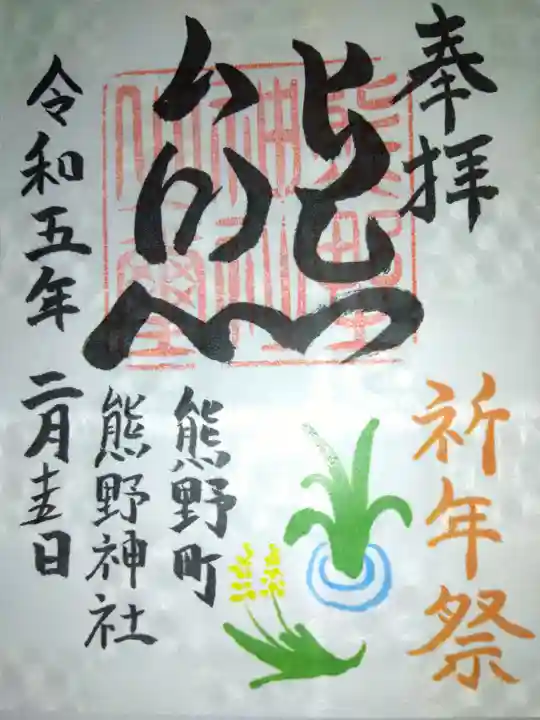 奉拝
祈年祭
熊
熊野町
熊野神社
令和五年二月十五日